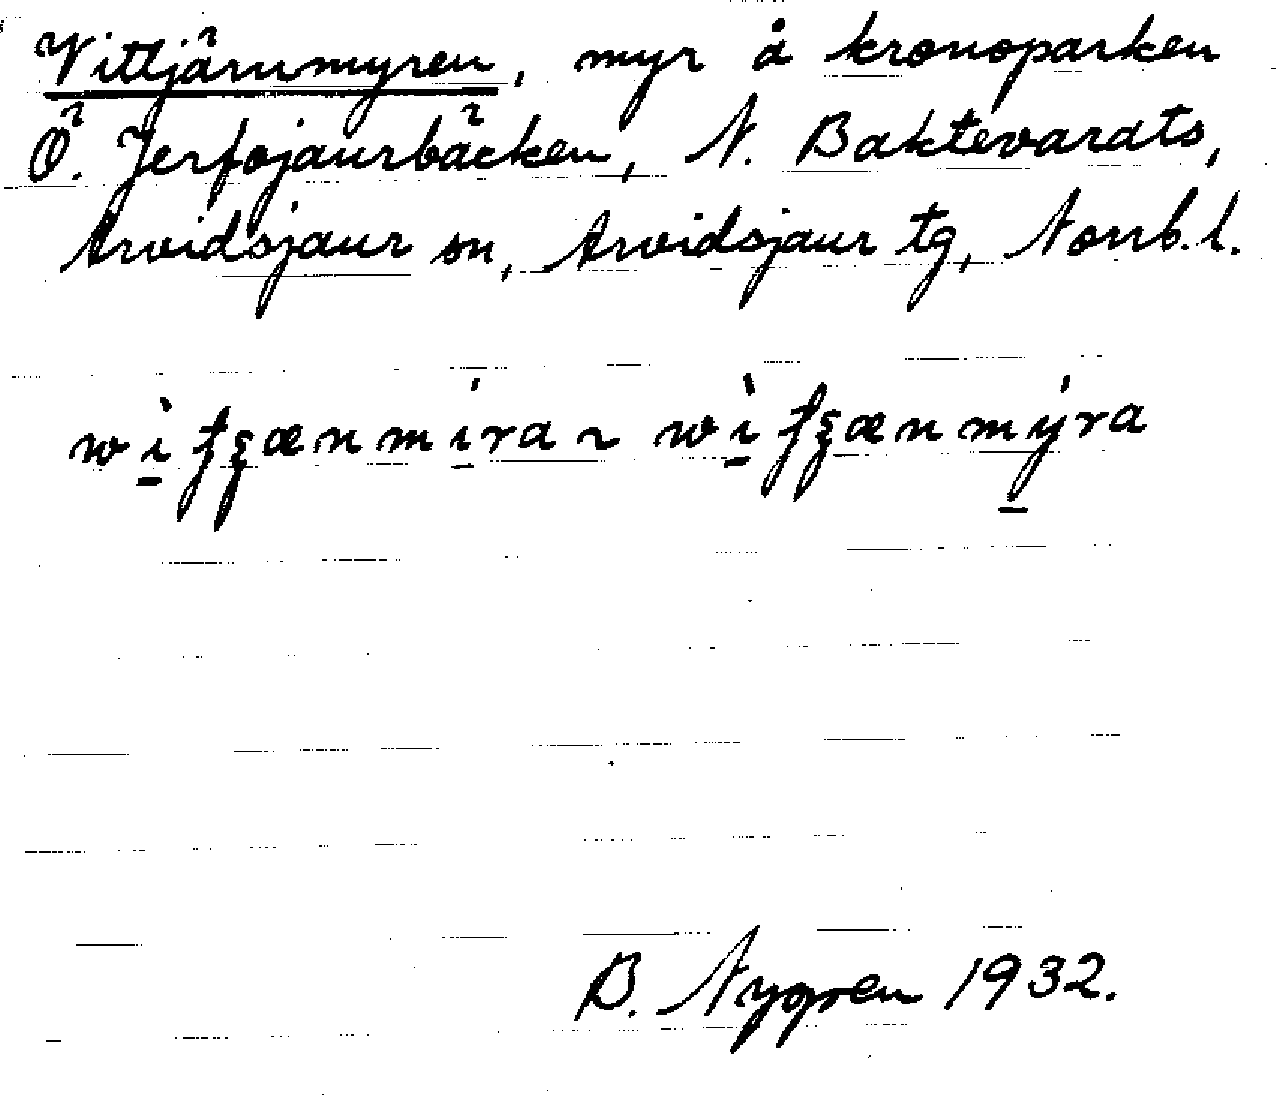 Vittjärnmyren, myr å kronoparken
Ö. Jerfojaurbäcken, N. Baktevardts,
Arvidsjaur sn, Arvidsjaur tg, Norrb. l.
B. Nygren 1932.